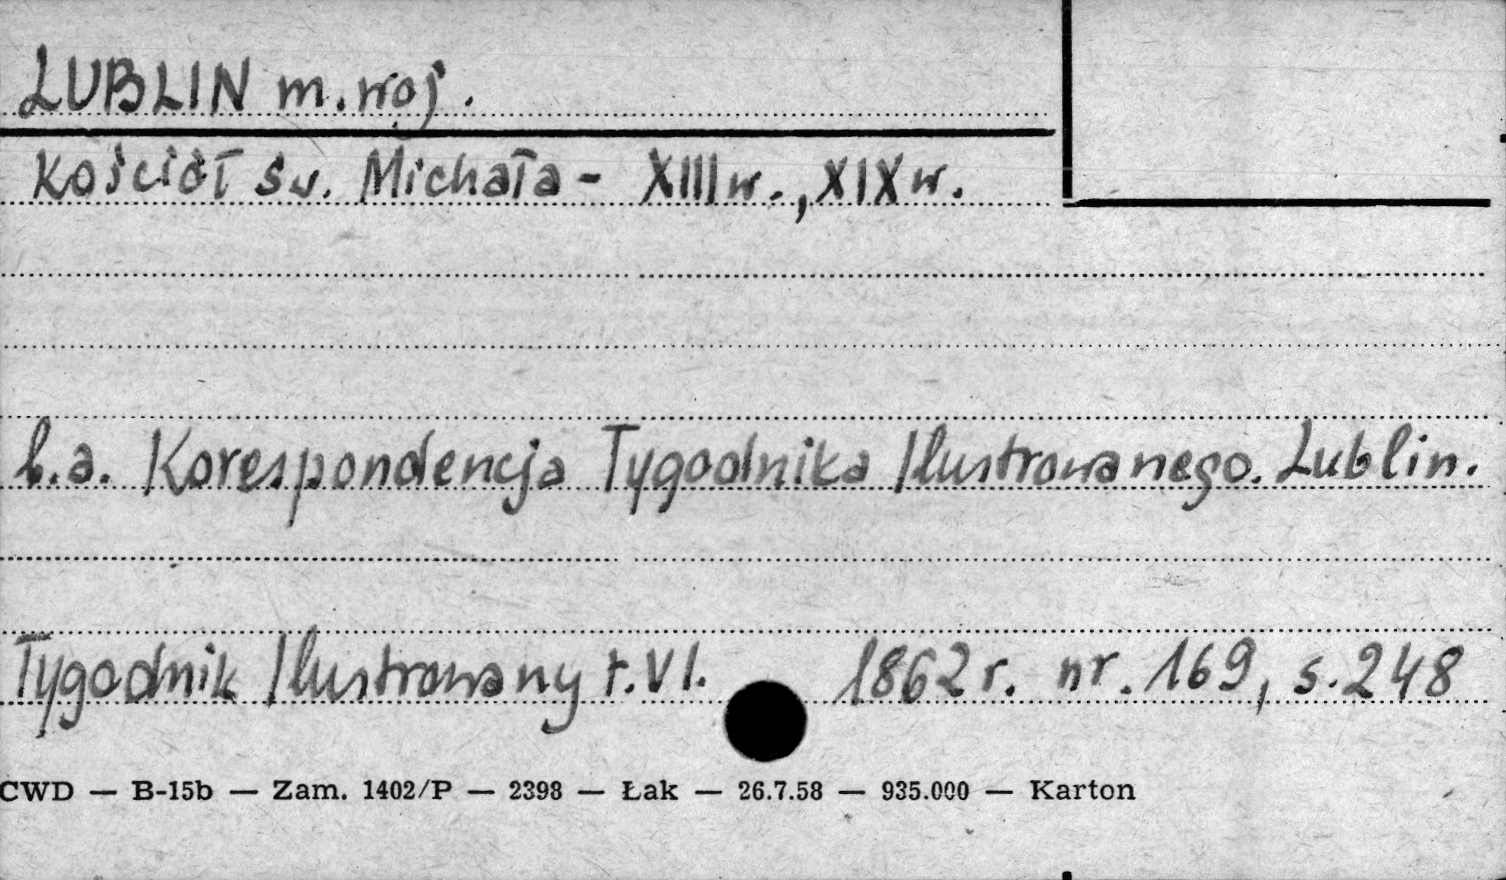 LUBLIN m. woj.
Kościół św. Michała - XIII w., XIX w.
b.a. Korespondencja Tygodnika Ilustrowanego. Lublin.
Tygodnik Ilustrowany t. VI. 1862 r. nr. 169, s. 248
CWD — B-15b — Zam. 1402/P — 2398 — Łak — 26.7.58 — 935.000 — Karton